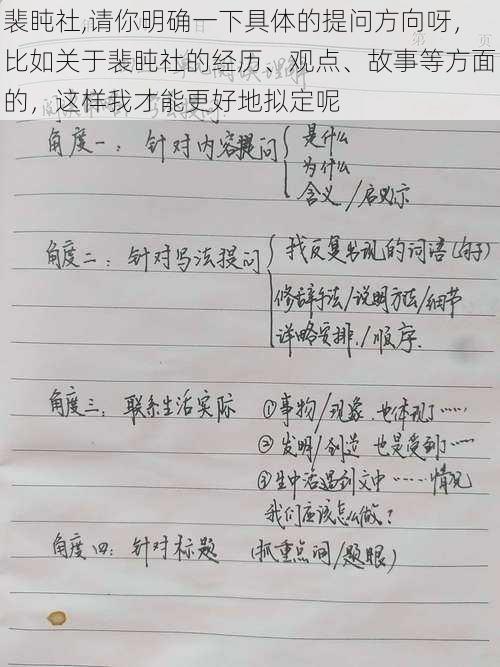 裴盹社,请你明确一下具体的提问方向呀，
比如关于裴盹社的经历、观点、故事等方面
的，这样我才能更好地拟定呢
角度一：针对内容提问
是什么
为什么
含义/启示
角度二：针对写法提问
找反复出现的词语(句子)
修辞手法/说明方法/细节
详略安排./顺序.
角度三：联系生活实际
①事物/现象.也体现了……
②发明/创造 也是受到……
③生中活遇到文中……情况
我们应该怎么做？
角度四：针对标题 (抓重点词/题眼)